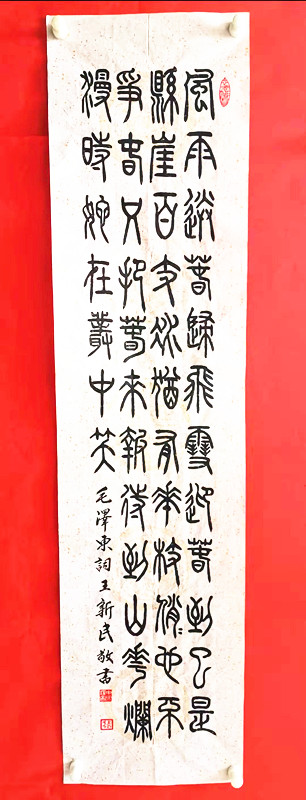 風雨送春歸飛雪迎春到已是
縣崖百丈冰猶有華枝俏〻也不
爭春只把春來報待到山華爛
漫時她在叢中笑
毛澤東詞王新民敬書